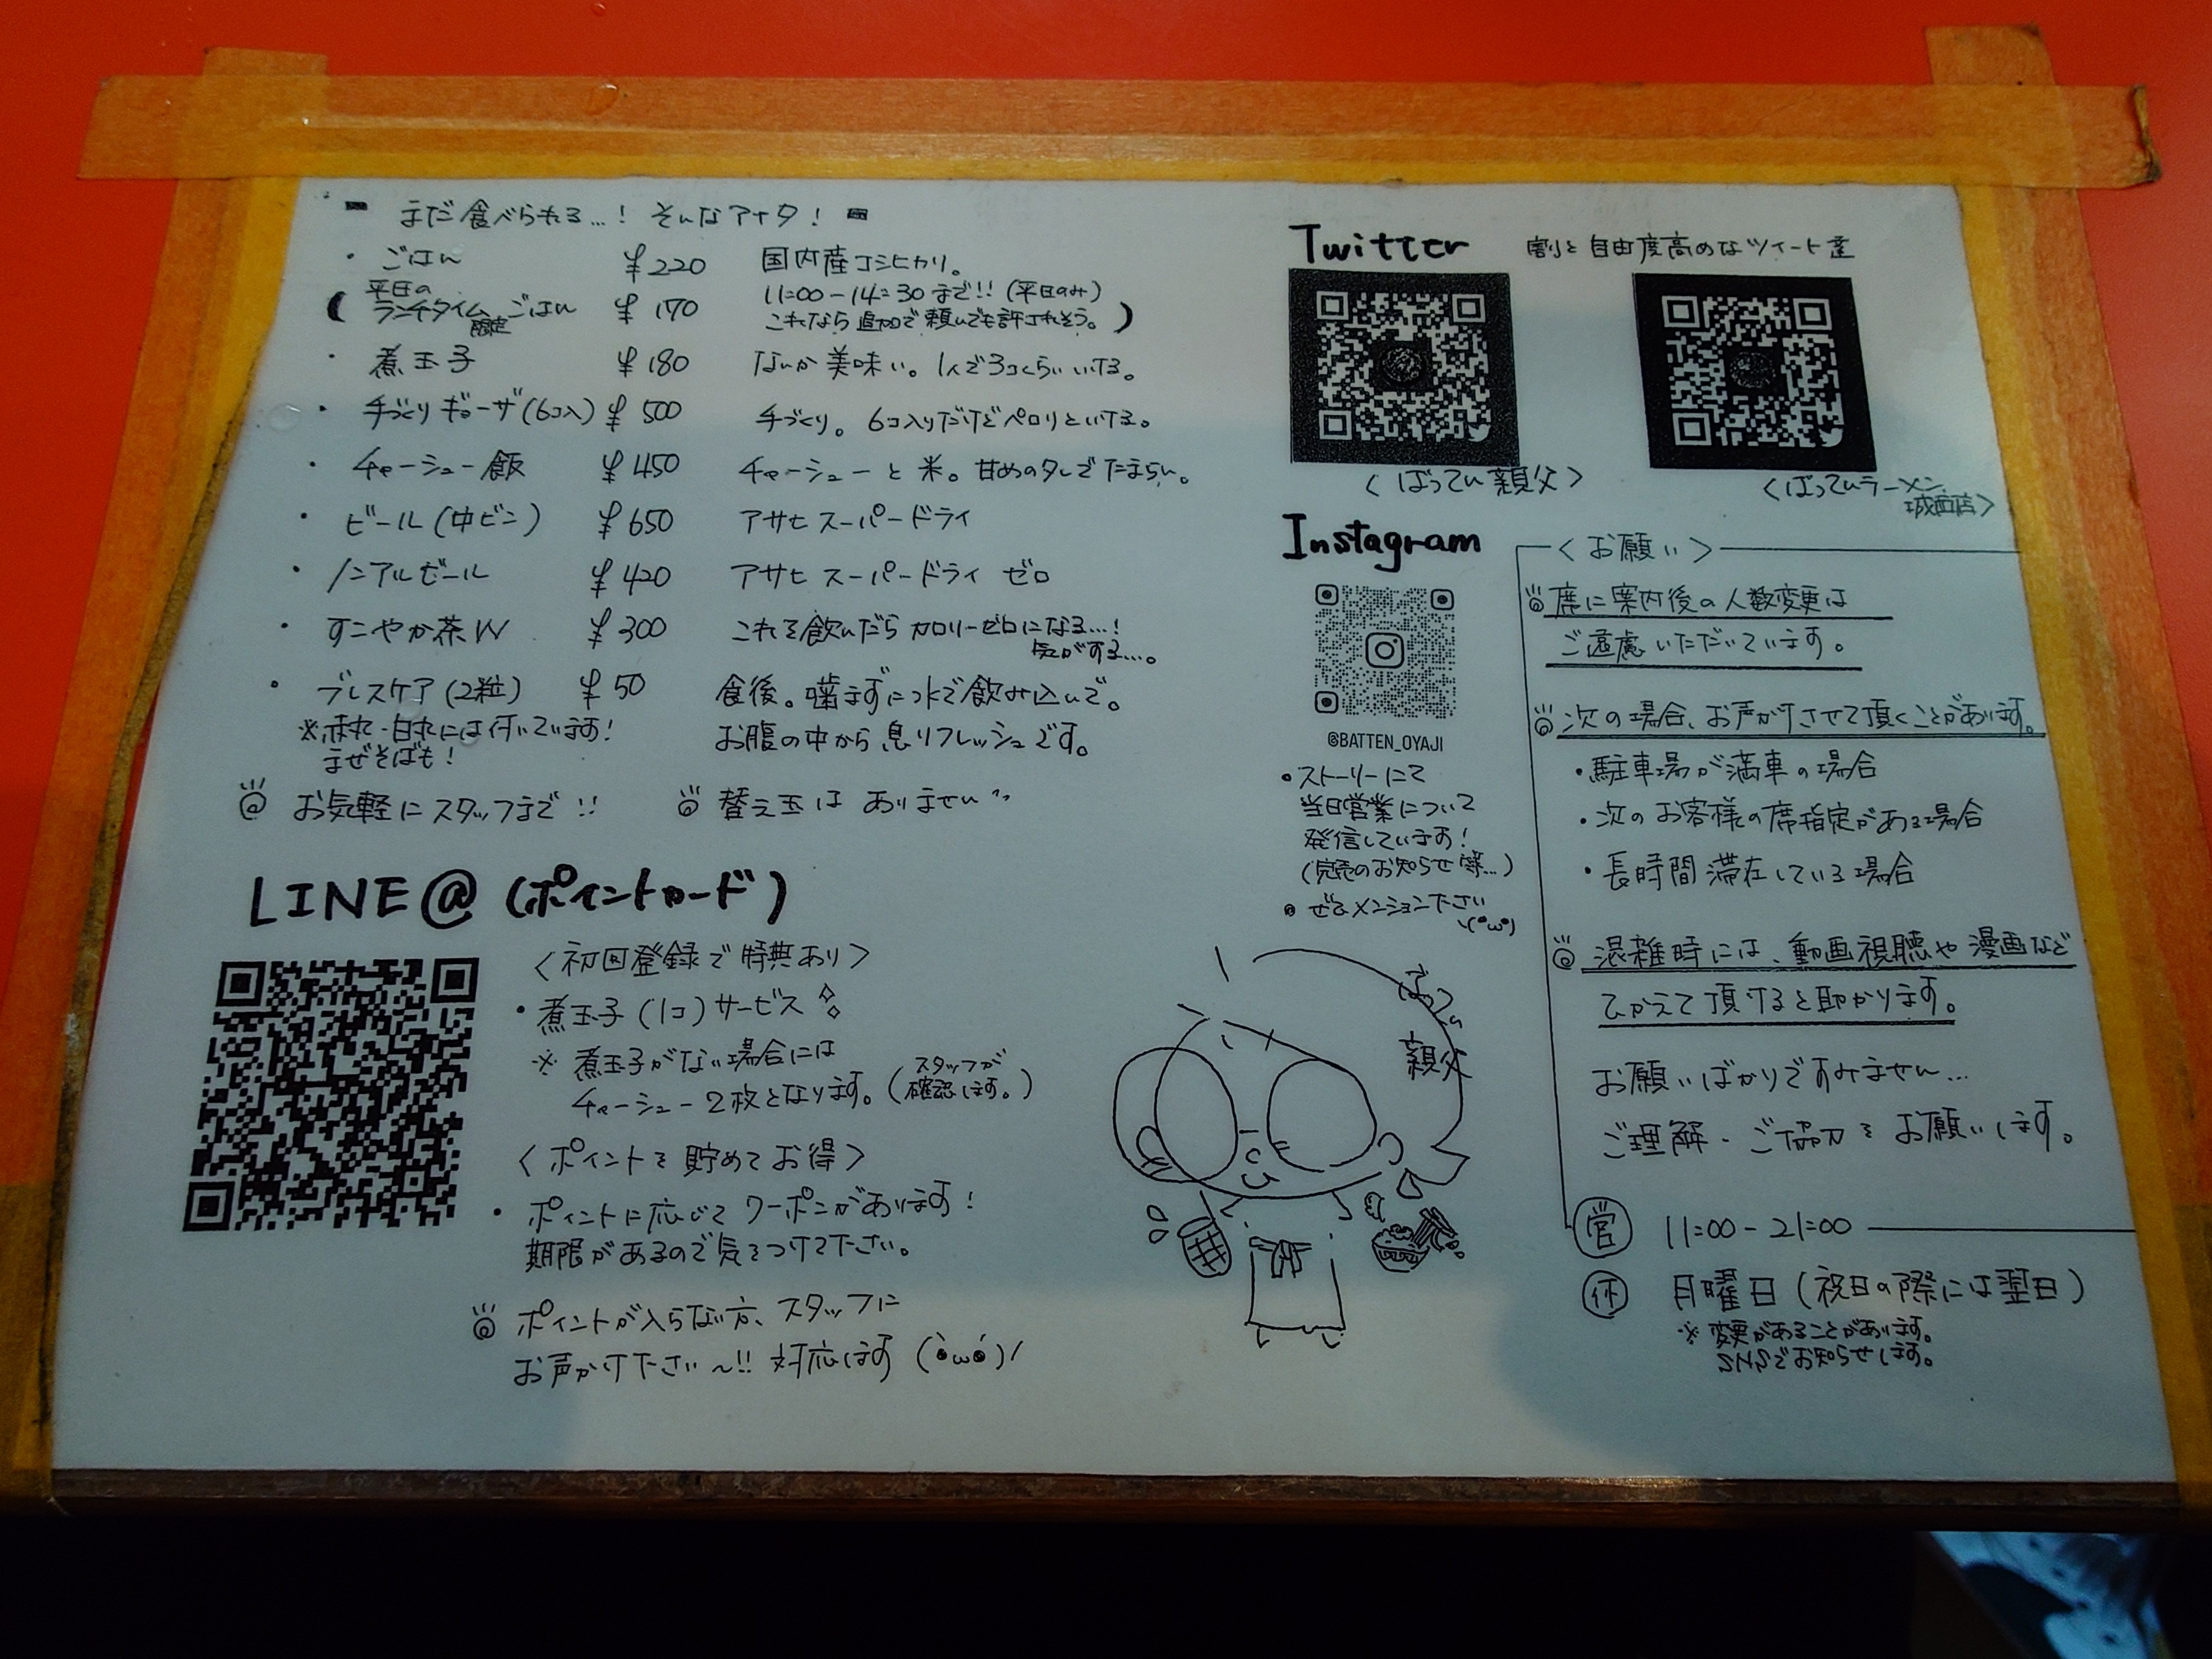 まだ食べられる…！ そんなアナタ！
・ごはん ¥220 国内産コシヒカリ。
(平日のランチタイム限定ごはん ¥170 11:00-14:30まで!!(平日のみ)
これなら追加で頼んでも許されそう。)
・煮玉子 ¥180 なんか美味い。1人で3コくらいいける。
・手づくりギョーザ(6コ入) ¥500 手づくり。6コ入りだけどペロリといける。
・チャーシュー飯 ¥450 チャーシューと米。甘めのタレでたまらん。
・ビール(中ビン) ¥650 アサヒスーパードライ
・ノンアルビール ¥420 アサヒスーパードライ ゼロ
・すこやか茶W ¥300 これを飲んだらカロリーゼロになる…！
気がする…。
・ブレスケア(2粒) ¥50 食後。噛まずに水で飲み込んで。
※赤丸・白丸には付いています！ お腹の中から息リフレッシュです。
まぜそばも！
お気軽にスタッフまで!! 替え玉はありません
LINE@(ポイントカード)
〈初回登録で特典あり〉
・煮玉子(1コ)サービス
※煮玉子がない場合には
チャーシュー2枚となります。(スタッフが確認します。)
〈ポイントを貯めてお得〉
・ポイントに応じてクーポンがあります！
期限があるので気をつけて下さい。
ポイントが入らない方、スタッフに
お声かけ下さい〜!! 対応します(•̀ω•́)/
Twitter 割と自由度高めなツイート達
〈ばってん親父〉 〈ばってんラーメン
城西店〉
Instagram
@BATTEN_OYAJI
・ストーリーにて
当日営業について
発信しています！
(完売のお知らせ等…)
・ぜひメンション下さい
\(•ω•)
ばってん
親父
〈お願い〉
席に案内後の人数変更は
ご遠慮いただいています。
次の場合、お声がけさせて頂くことがあります。
・駐車場が満車の場合
・次のお客様の席指定がある場合
・長時間滞在している場合
混雑時には、動画視聴や漫画など
ひかえて頂けると助かります。
お願いばかりですみません…
ご理解・ご協力をお願いします。
営 11:00-21:00
休 月曜日(祝日の際には翌日)
※変更があることがあります。
SNSでお知らせします。